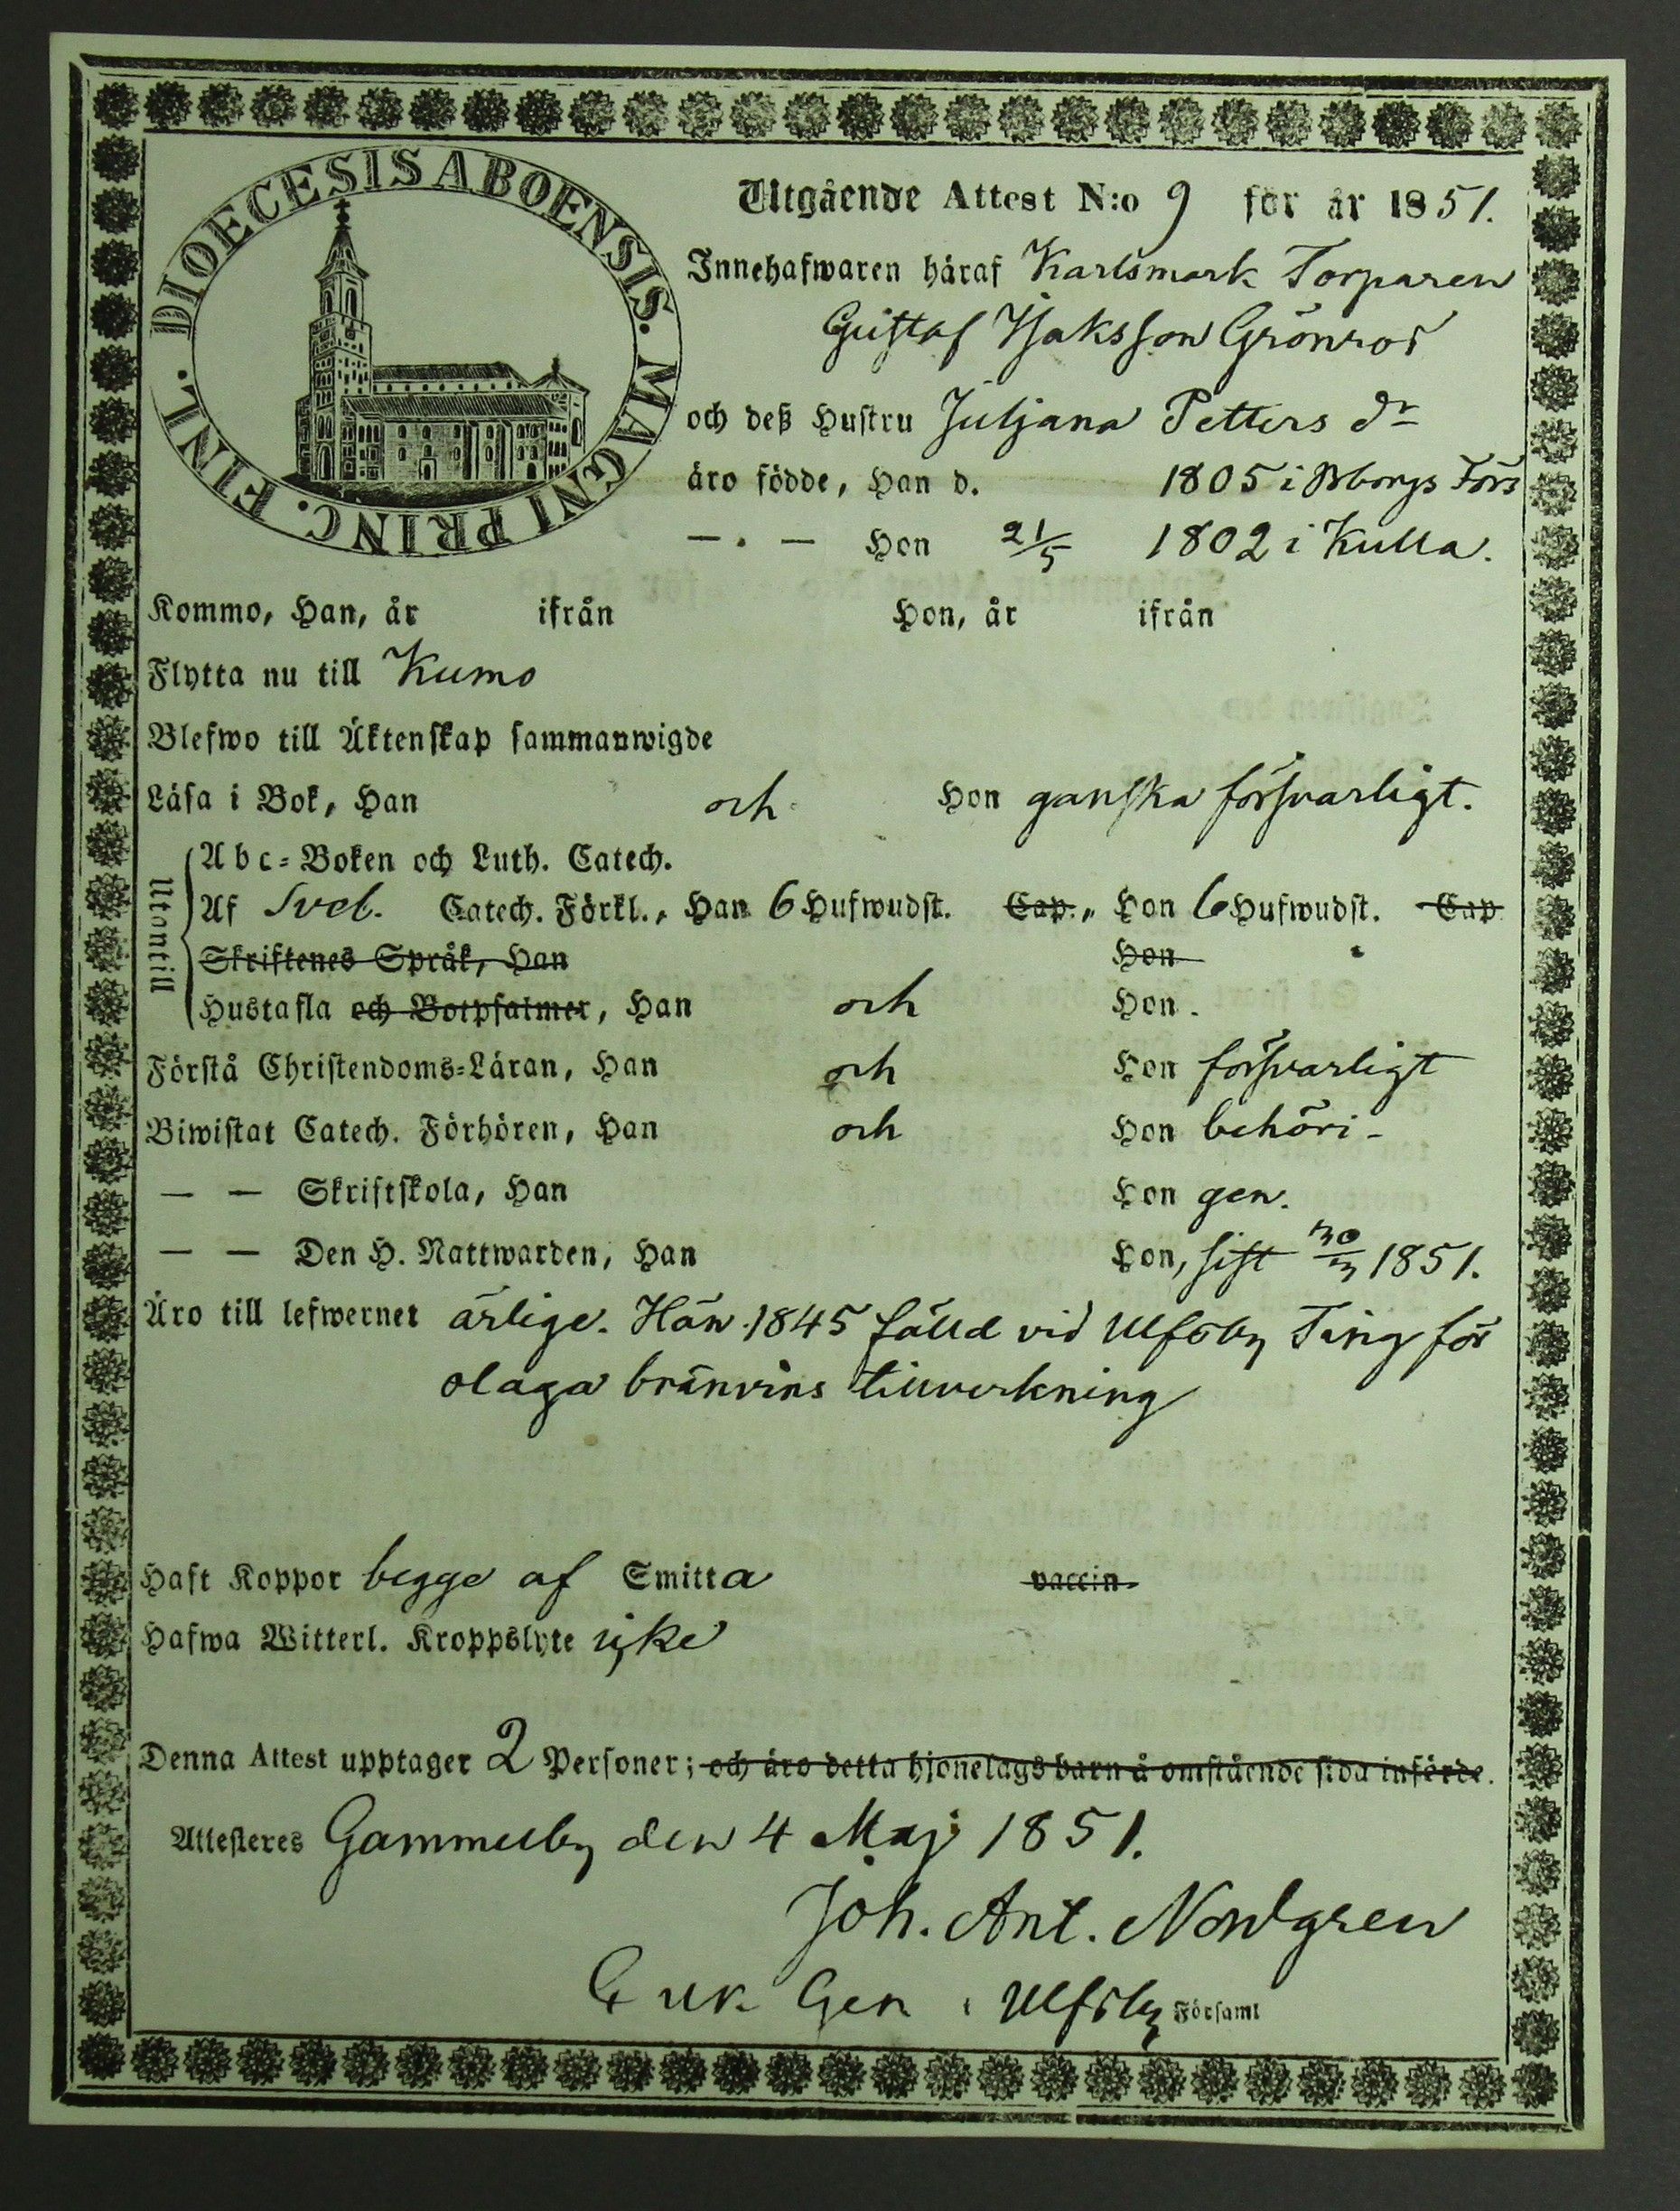 DIOECESIS ABOENSIS. MAGNI PRINC. FINL.
Utgående Attest N:o 9 för år 1851.
Innehafwaren häraf Karlsmark Torparen
Gustaf Isaksson Grönros
och deß Hustru Juljana Petters dr
äro födde, Han d. 1805 i Bborgs Förs
— . — Hon 21/5 1802 i Kulla.
Kommo, Han, år ifrån Hon, år ifrån
Flytta nu till Kumo
Blefwo till Äktenskap sammanwigde
Läsa i Bok, Han och Hon ganska försvarligt.
Utantill
Abc-Boken och Luth. Catech.
Af Sveb. Catech. Förkl., Han 6 Hufwudst. Cap., Hon 6 Hufwudst. Cap
Skriftenes Språk, Han Hon
Hustafla och Botpsalmer, Han och Hon.
Förstå Christendoms-Läran, Han och Hon försvarligt
Biwistat Catech. Förhören, Han och Hon behöri-
— — Skriftskola, Han Hon gen.
— — Den H. Nattwarden, Han Hon, sist 30/3 1851.
Äro till lefwernet ärlige. Han 1845 fälld vid Ulfsby Ting för
olaga bränvins tillverkning
Haft Koppor begge af Smitta vaccin.
Hafwa Witterl. Kroppslyte icke
Denna Attest upptager 2 Personer; och äro detta hjonelags barn å omstående sida införde.
Attesteres Gammelby den 4 Maj 1851.
Joh. Ant. Nordgren
i Ulfsby Församl